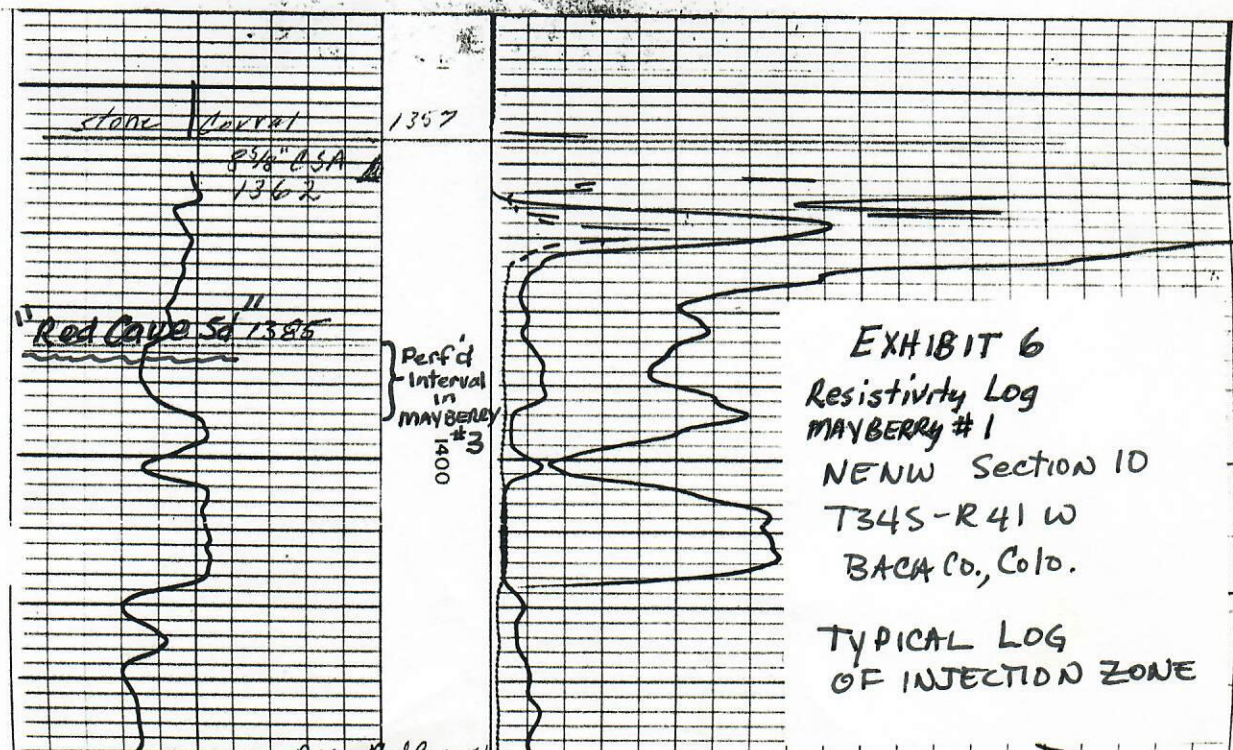 Stone Corral 1357
8 5/8" CSA
1362
"Red Cave Sd" 1385
Perf'd
Interval
in
MAYBERRY
#3
1400
EXHIBIT 6
Resistivity Log
MAYBERRY #1
NENW Section 10
T34S-R41W
BACA CO., Colo.
TYPICAL LOG
OF INJECTION ZONE